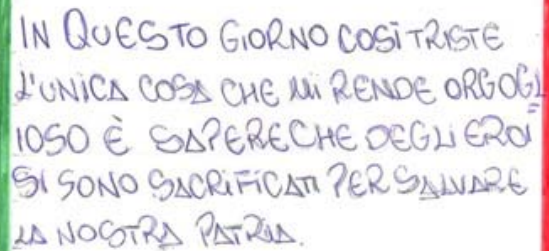 IN QUESTO GIORNO COSÌ TRISTE
L'UNICA COSA CHE MI RENDE ORGOGL
IOSO È SAPERE CHE DEGLI EROI
SI SONO SACRIFICATI PER SALVARE
LA NOSTRA PATRIA.